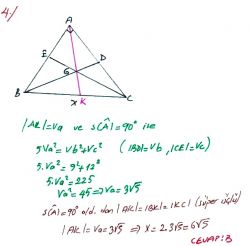 4-)
A
E
D
G
B
x
K
C
|AK|=Va ve s(Â)=90° ise
5Va²=Vb²+Vc² (|BD|=Vb, |CE|=Vc)
5.Va²=9²+12²
5.Va²=225
Va²=45 ⇒ Va=3√5
s(Â)=90° old. dan |AK|=|BK|=|KC| (süper üçlü)
|AK|=Va=3√5 ⇒ x=2.3√5=6√5
CEVAP:B